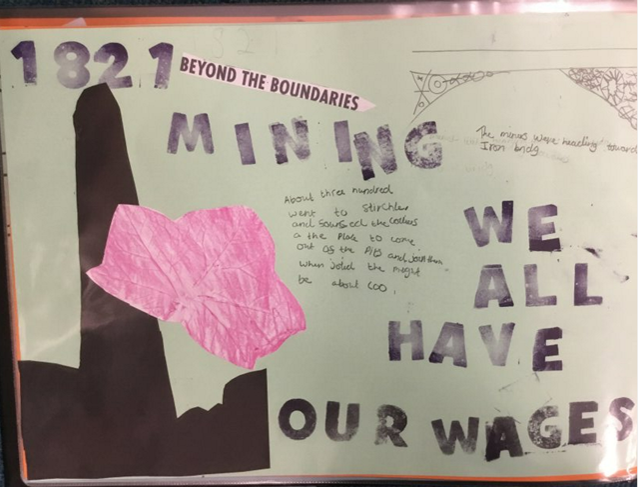 1821
BEYOND THE BOUNDARIES
MINING
The miners were heading toward
Iron bridg
About three hundred
went to Stirchley
and the Colliers
a the Place to come
out of the Pits and Join them
When Joied the might
be about 600
WE
ALL
HAVE
OUR WAGES